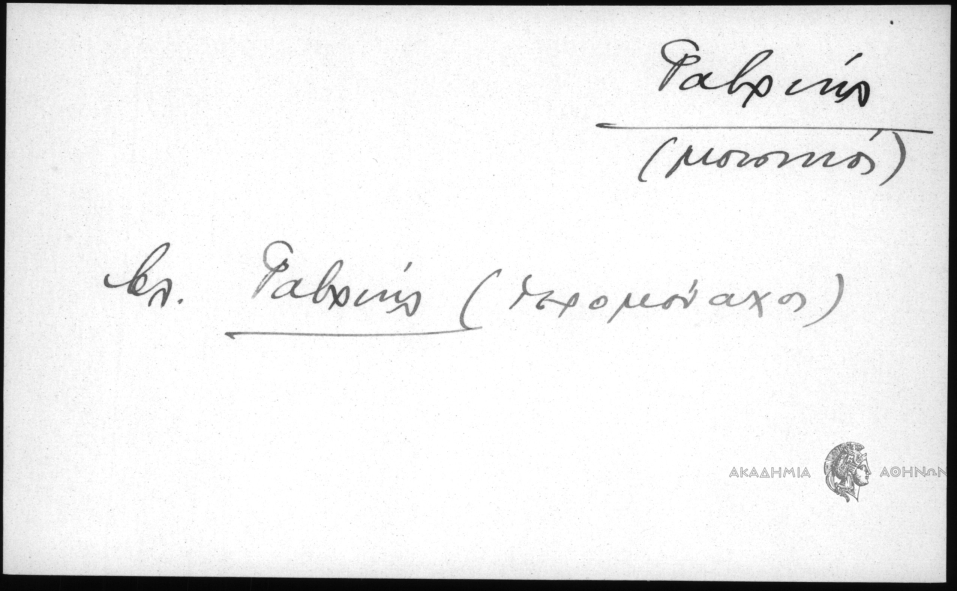 Γαβριήλ
(μουσικός)
βλ. Γαβριήλ (ἱερομόναχος)
ΑΚΑΔΗΜΙΑ ΑΘΗΝΩΝ